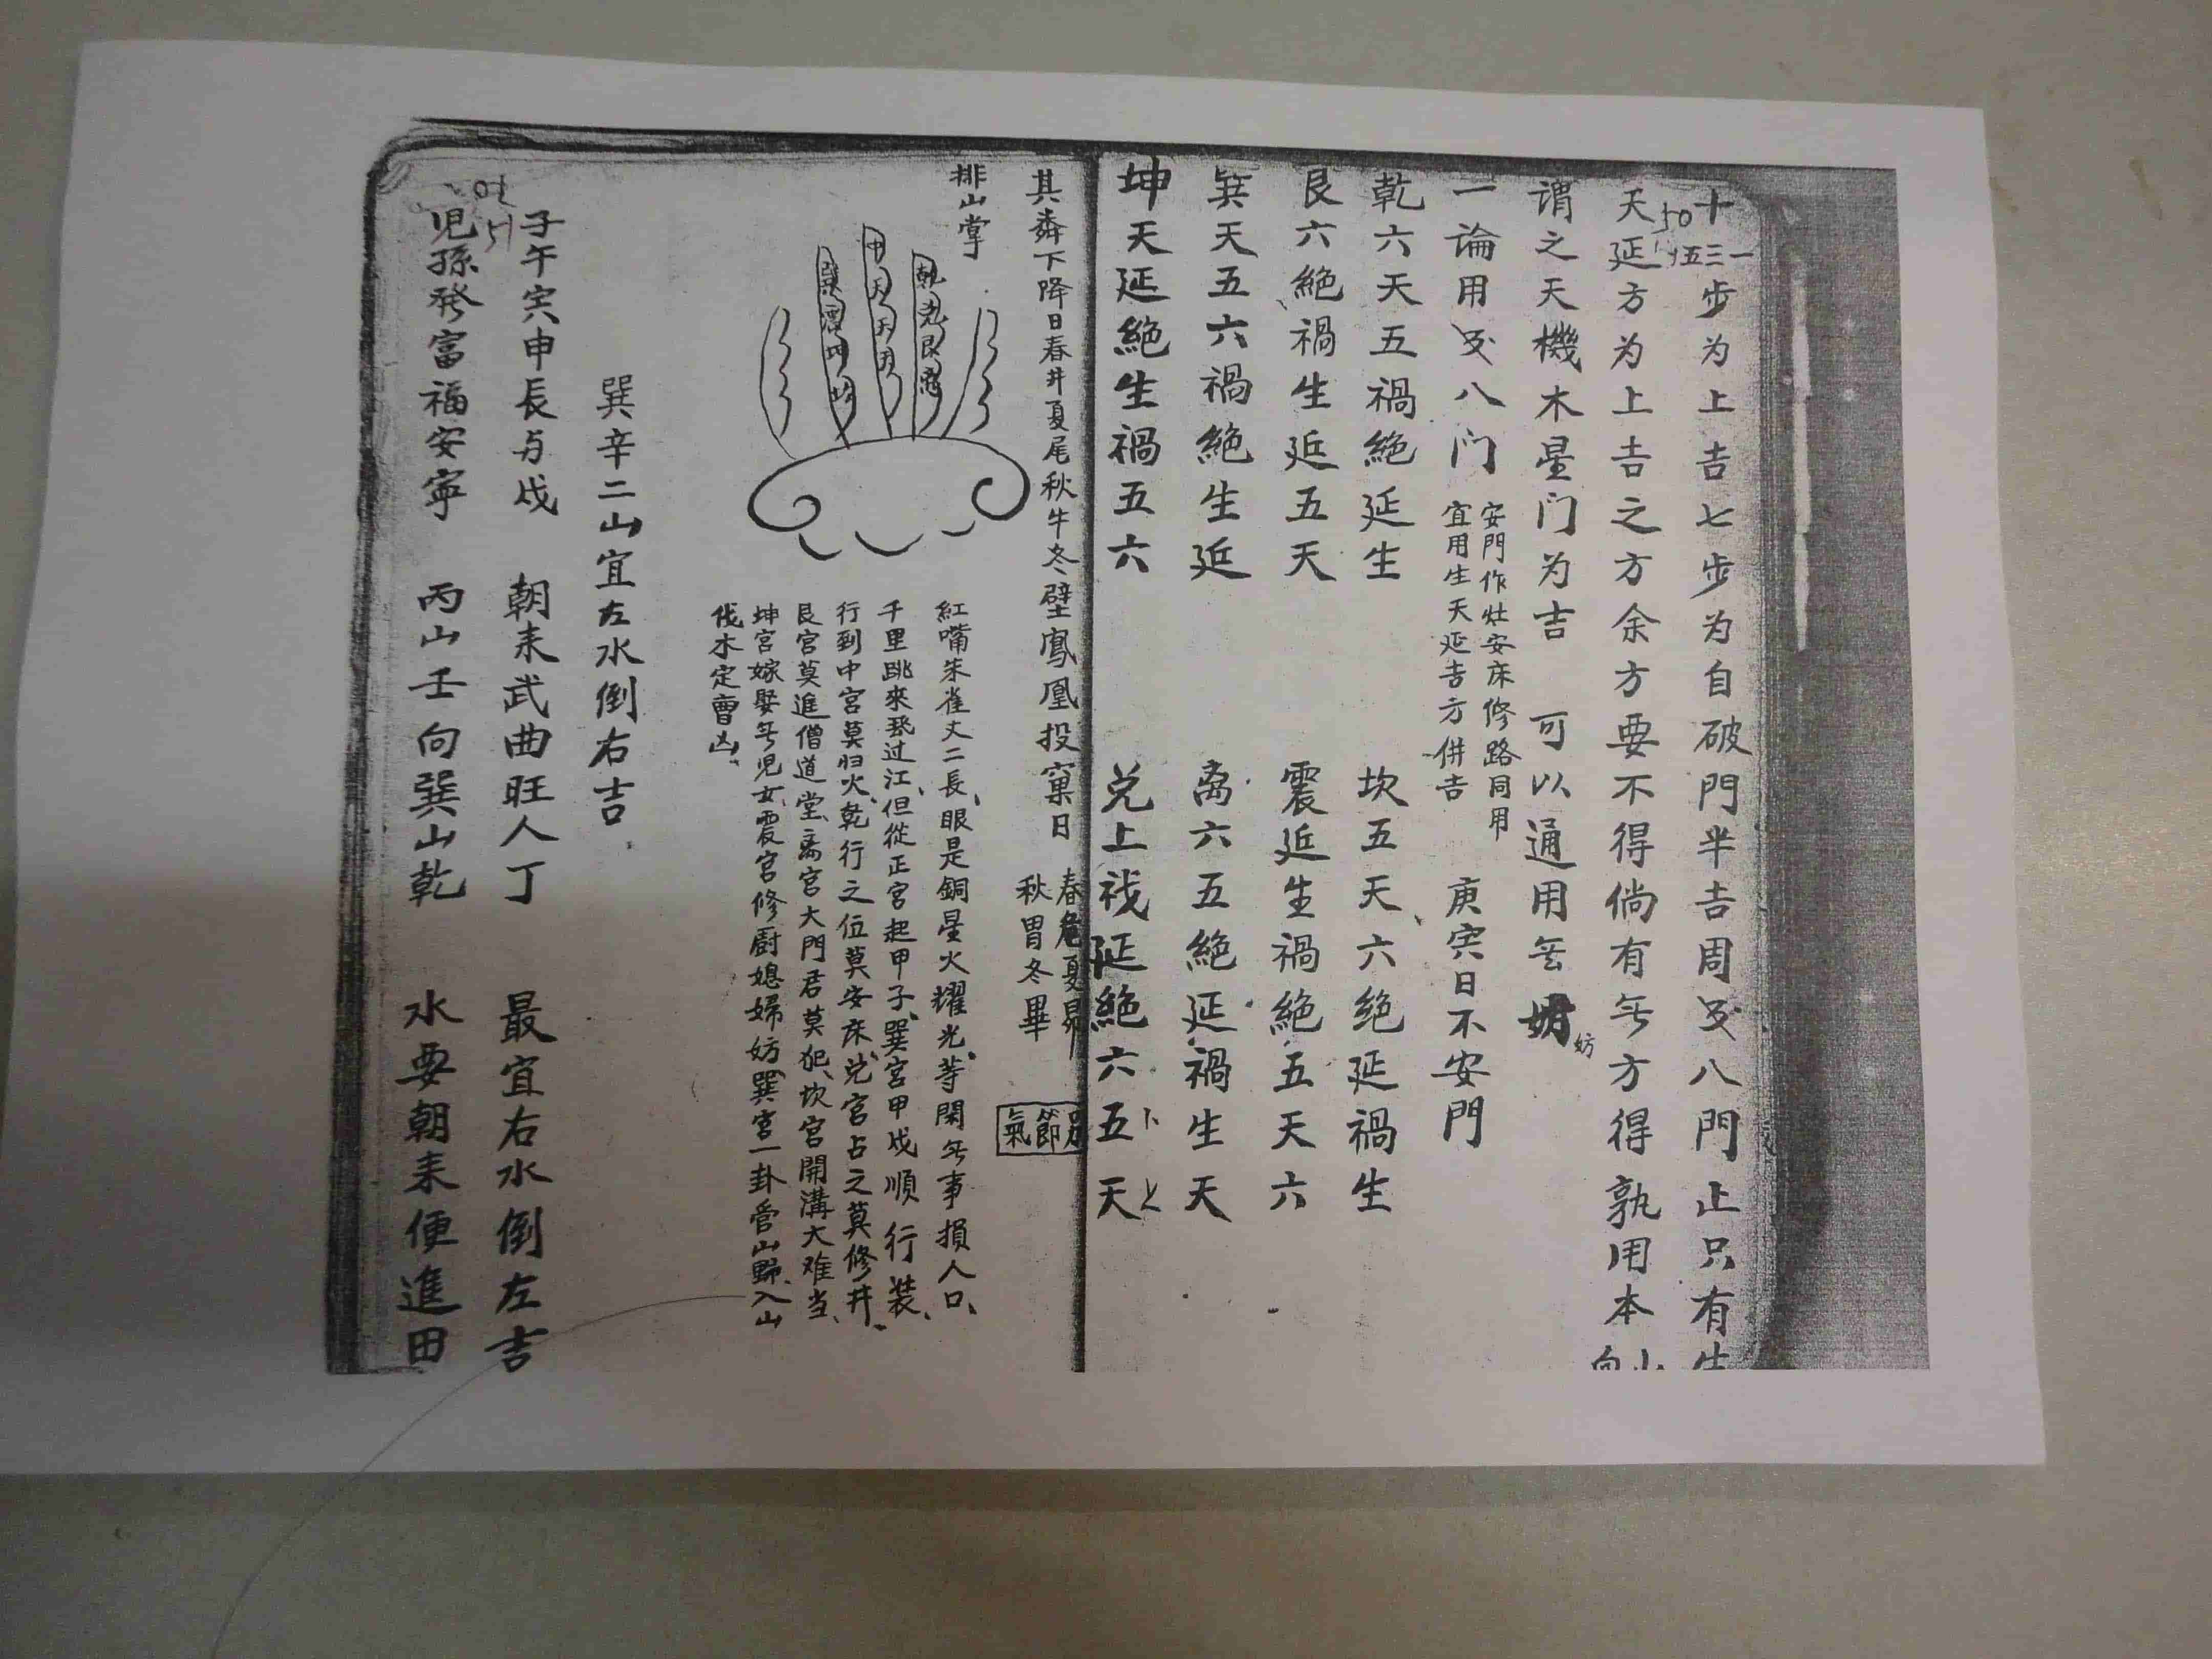 十三一步为上吉七步为自破門半吉周及八門止只有生
50
伍
天延方为上吉之方余方要不得倘有兮方得孰用本山向
谓之天機木星门为吉 可以通用無妨
妨
一論用及八门
安門作灶安床修路同用
宜用生天延吉方併吉
庚寅日不安門
乾六天五禍絕延生 坎五天六絕延禍生
艮六絕禍生延五天 震延生禍絕五天六
巽天五六禍絕生延 离六五絕延禍生天
坤天延絕生禍五六 兑上禍延絕六五天
其 下降日春井夏尾秋牛冬壁鳳凰投窠日
春危夏昴
秋胃冬畢
節氣
排山掌
乾兑艮离
中天
巽震坤坎
紅嘴朱雀丈二長、眼是銅星火耀光、等閑兮事損人口、
千里跳來 过江、但從正宮起甲子、巽宮甲戌順行装、
行到中宮莫归火、乾行之位莫安床、兑宮占之莫修井、
艮宮莫進僧道堂、离宮大門君莫犯、坎宮開溝大难当、
坤宮嫁娶兮児女、震宮修厨媳婦妨、巽宮一卦管山野、入山
伐木定曹凶、
巽辛二山宜左水倒右吉
子午寅申長与戌 朝耒武曲旺人丁 最宜右水倒左吉
51
児孫發富福安寧 丙山壬向巽山乾 水要朝耒便進田